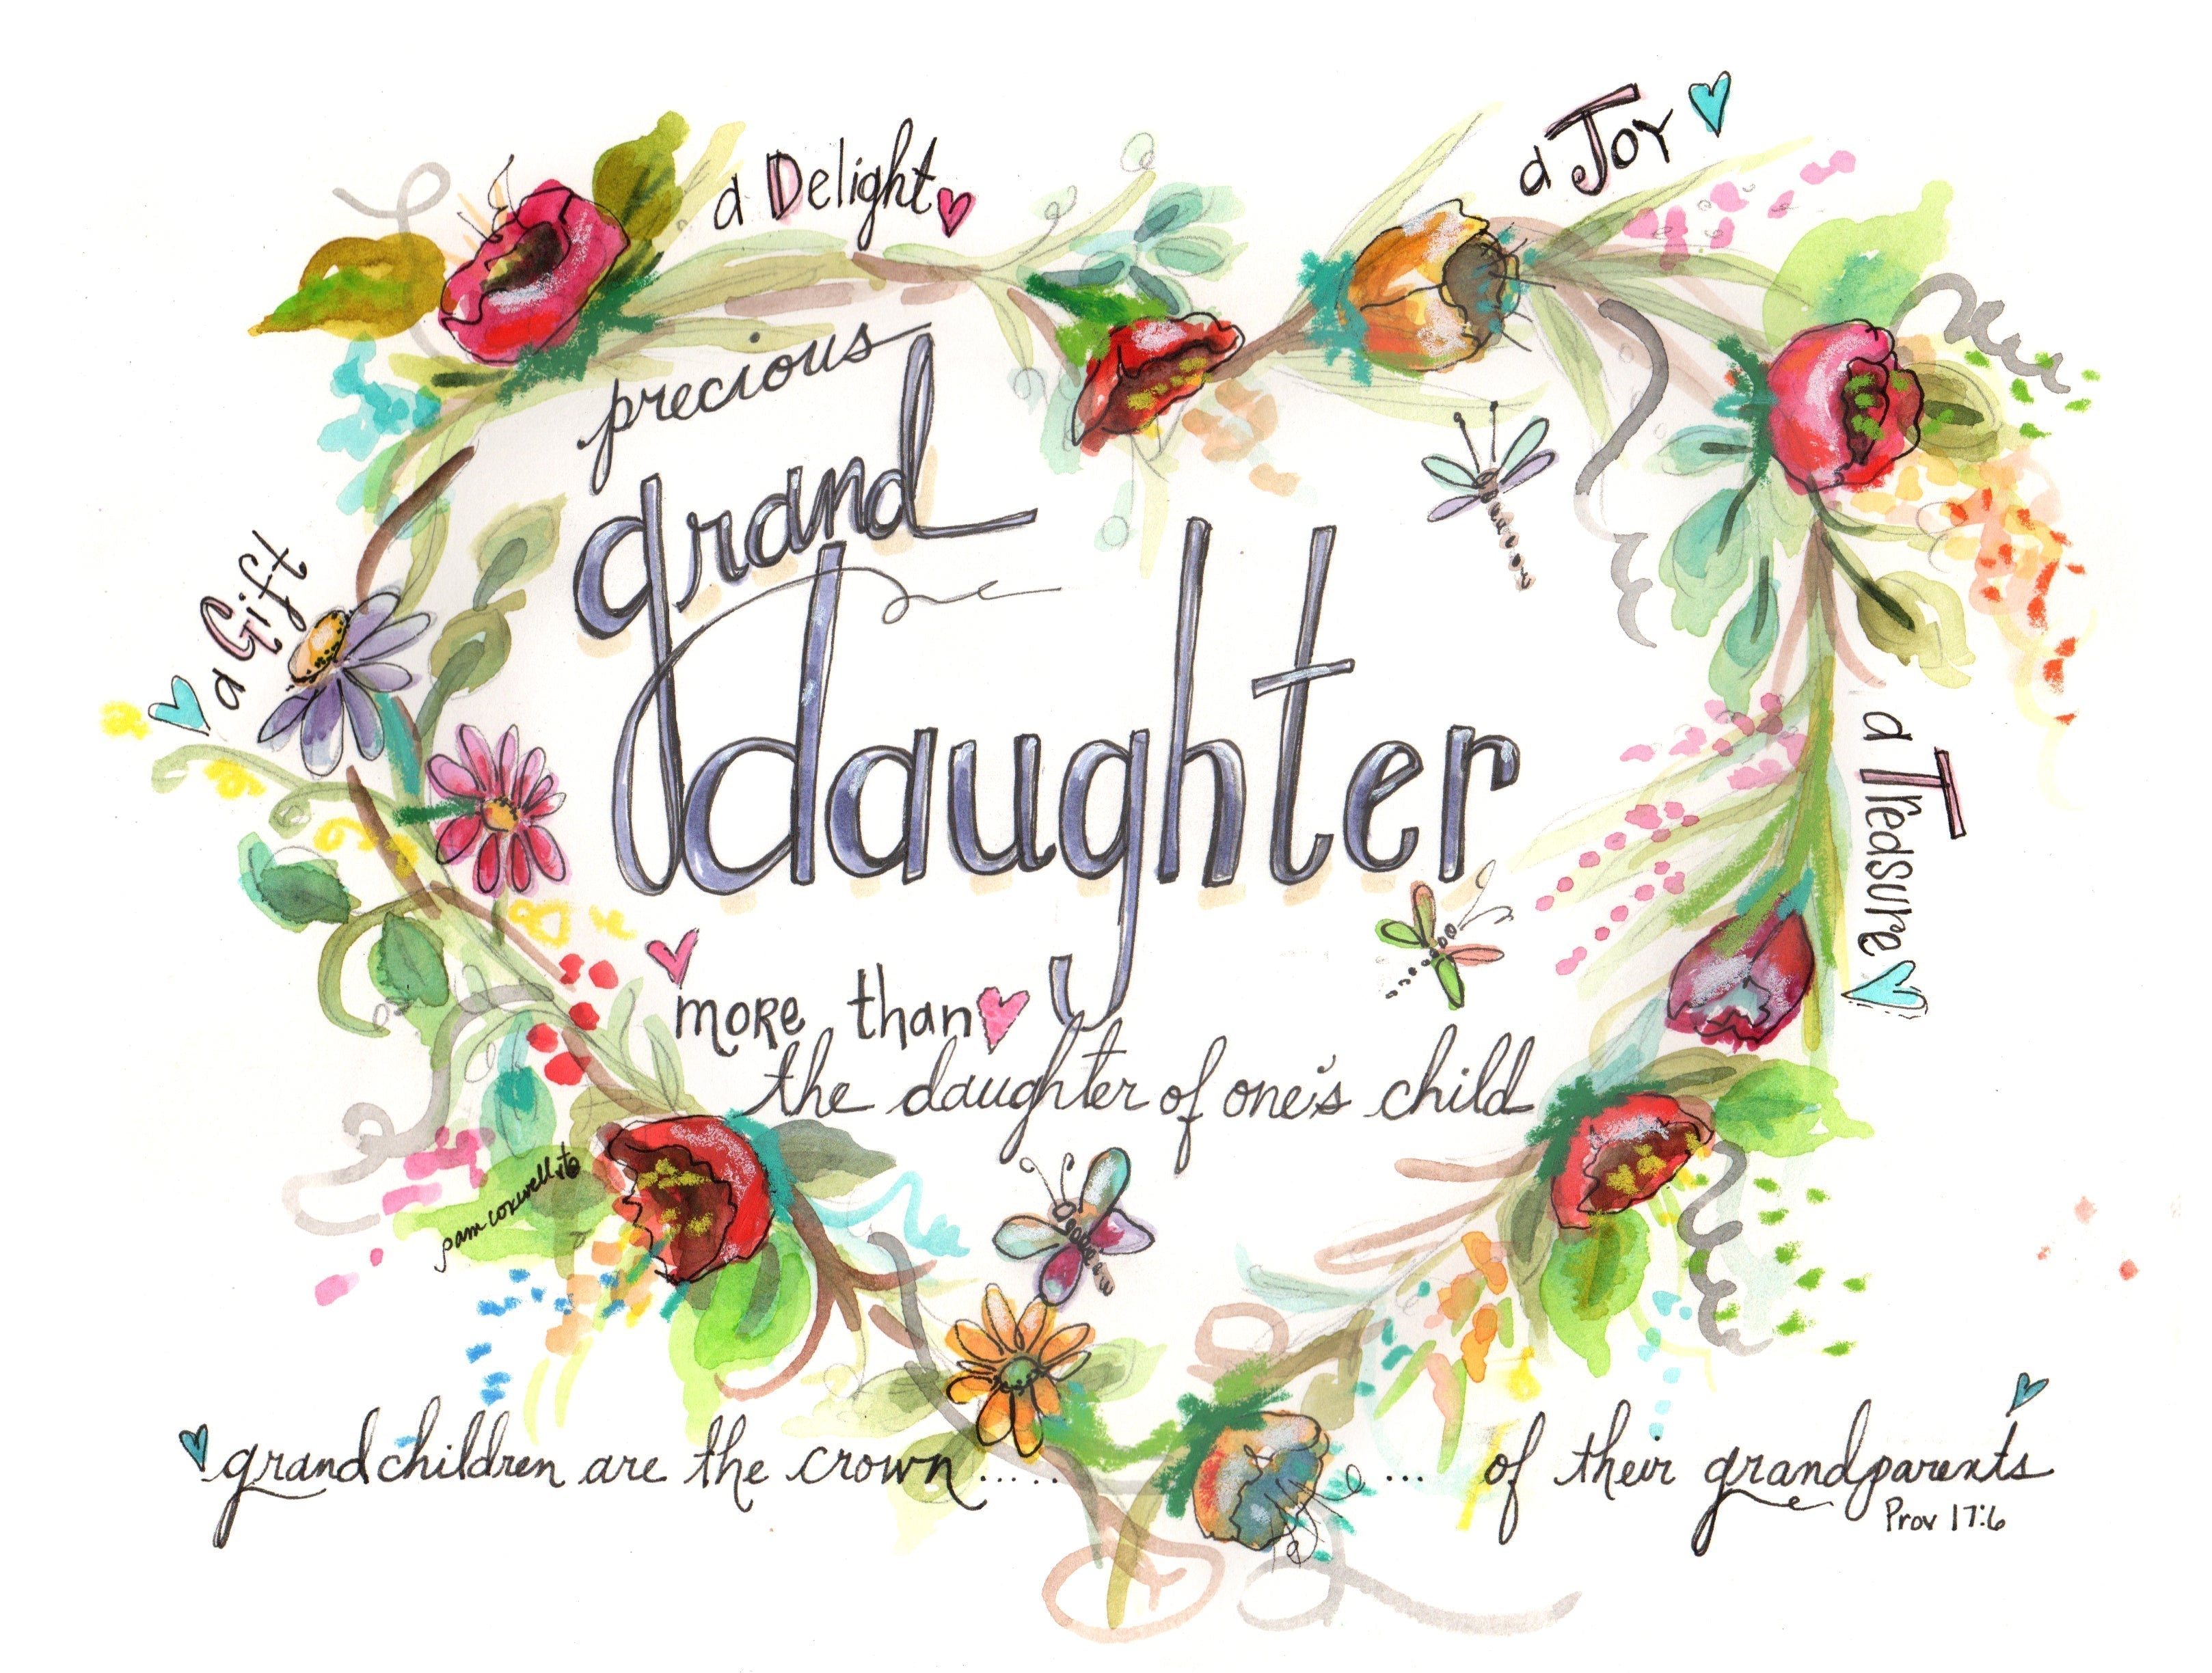 a Delight
a Joy
a Gift
a Treasure
precious
grand
daughter
more than
the daughter of one's child
pam coxwell
grandchildren are the crown..... ... of their grandparents
Prov 17:6